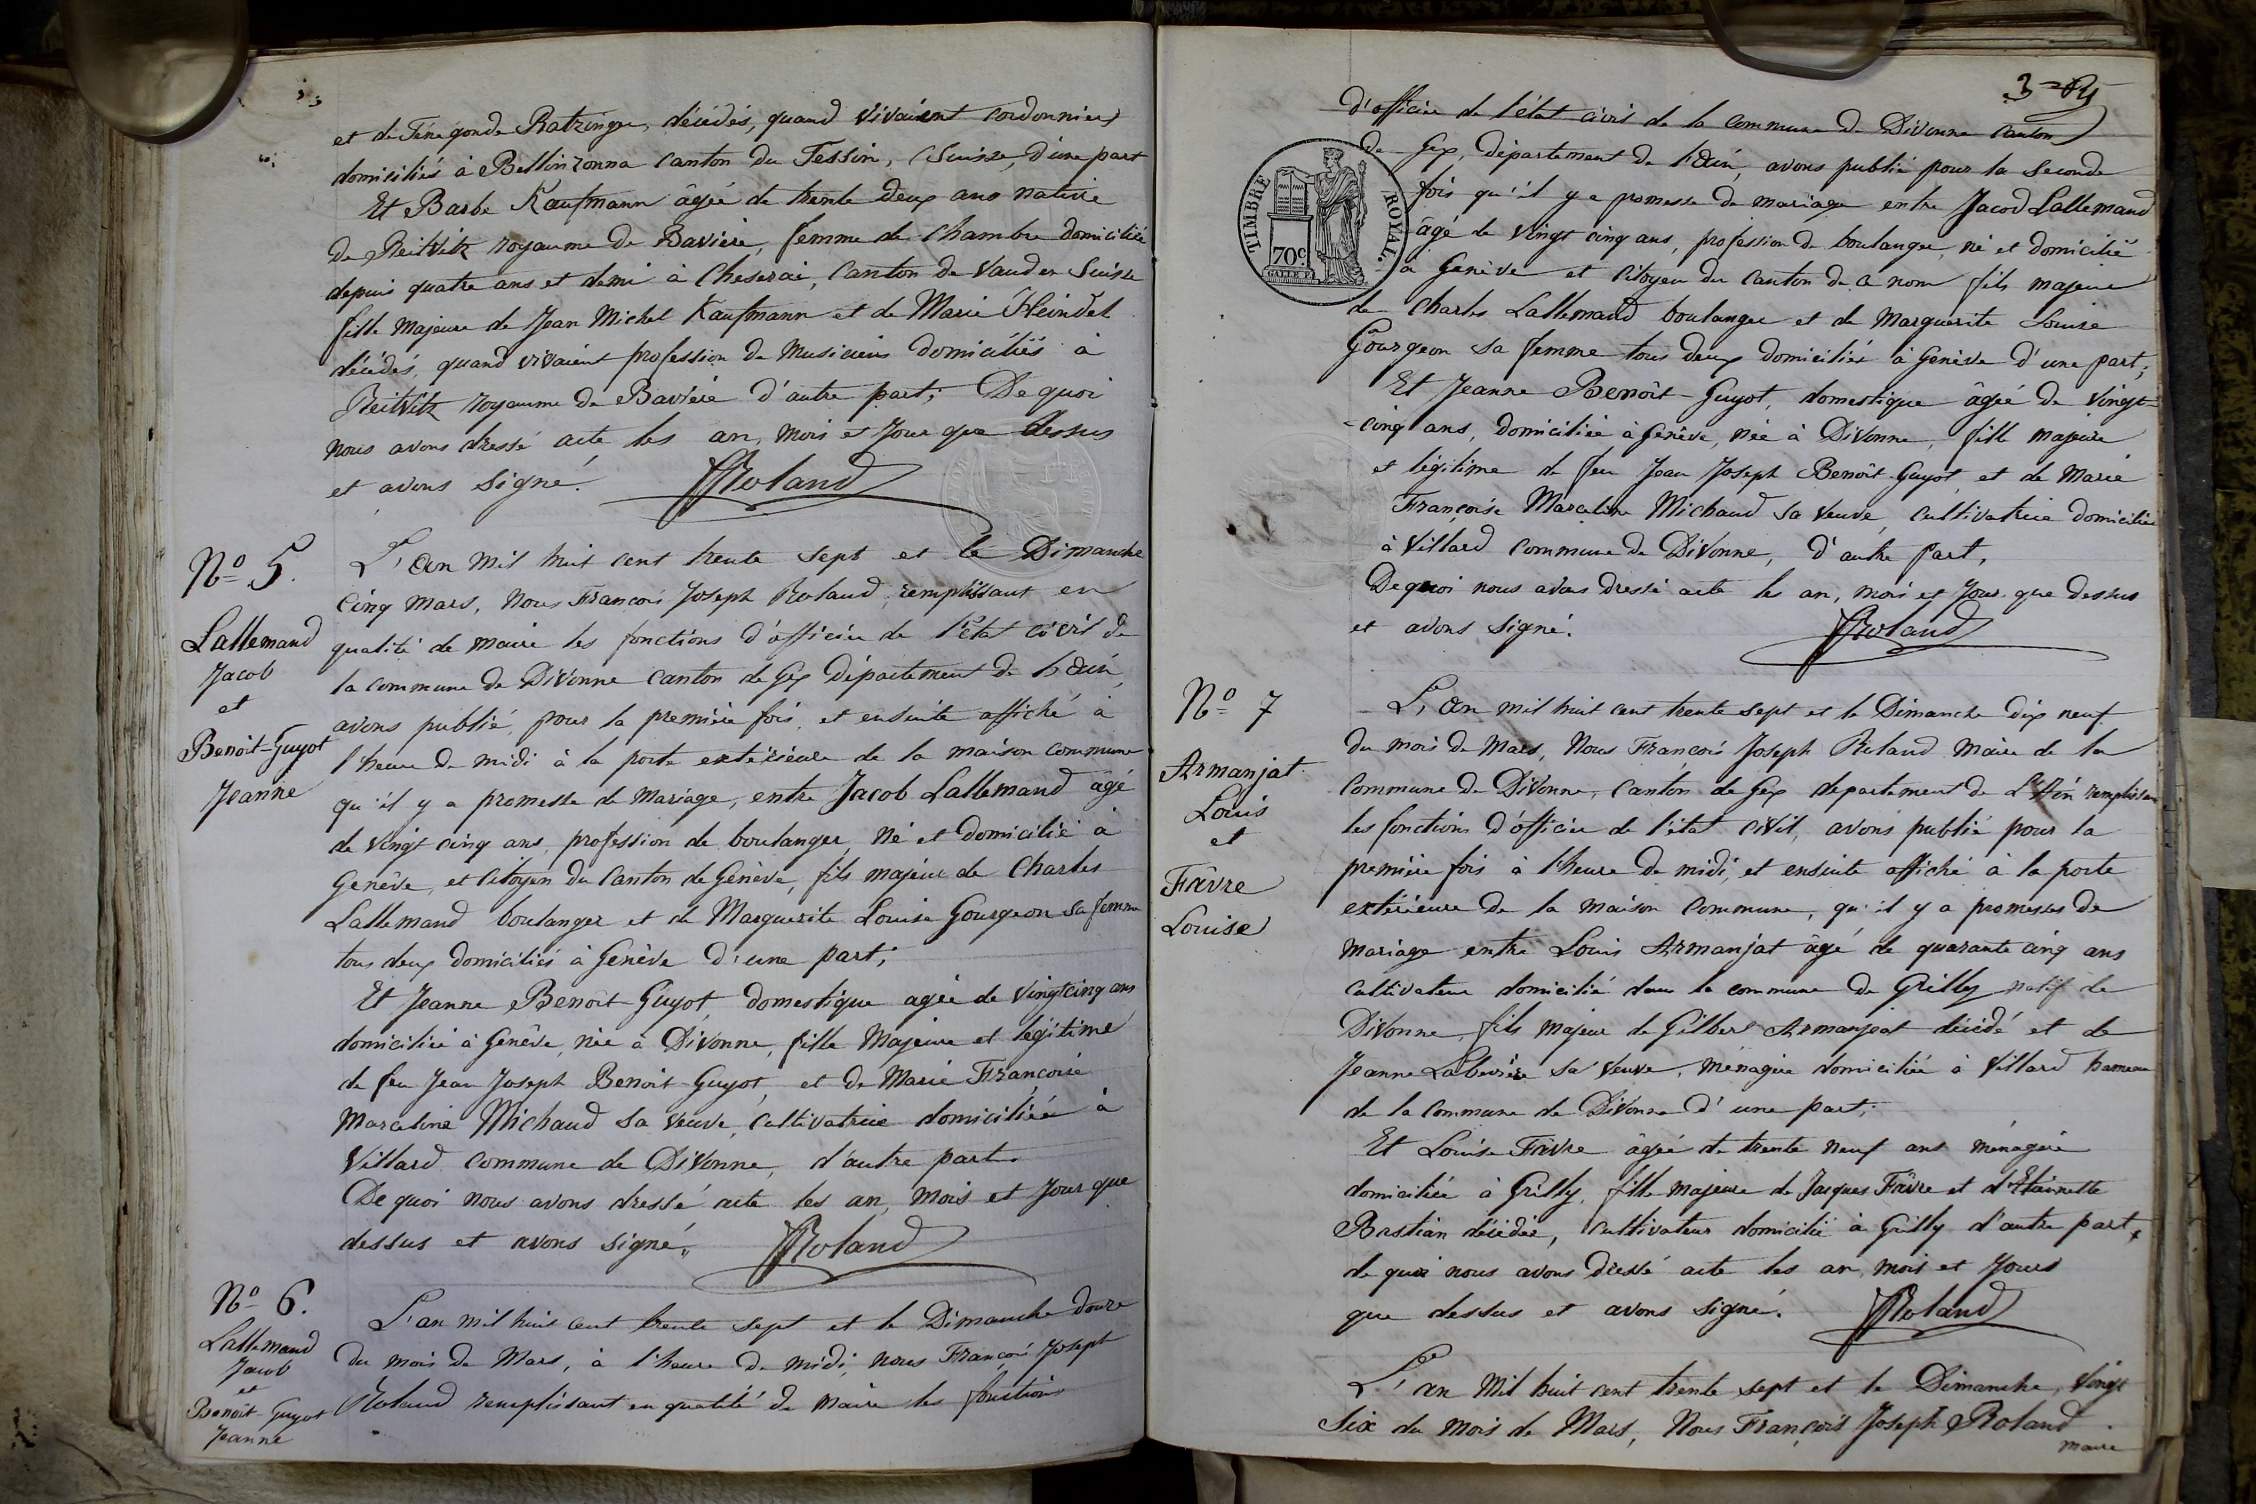 et de Fénégonde Ratzinger, décédés, quand vivaient cordonniers
domiciliés à Bellinzonna canton du Tessin, (Suisse, d'une part
Et Barbe Kaufmann âgée de trente deux ans native
de Reitvitz royaume de Bavière, femme de chambre domiciliée
depuis quatre ans et demi à Cheserai, Canton de Vaud en Suisse
fille majeure de Jean Michel Kaufmann et de Marie Heindel
décédés, quand vivaient profession de Musiciens domiciliés à
Reitvitz royaume de Bavière d'autre part; De quoi
nous avons dressé acte les an, mois et jour que dessus
et avons signé. Roland
Nº 5.
Lallemand
Jacob
et
Benoit-Guyot
Jeanne
L'an mil huit cent trente sept et le Dimanche
Cinq mars, Nous François Joseph Roland, remplissant en
qualité de maire les fonctions d'officier de l'état civil de
la commune de Divonne canton de Gex département de l'ain,
avons publié, pour la première fois, et ensuite affiché à
l'heure de midi à la porte extérieure de la maison commune
qu'il y a promesse de mariage, entre Jacob Lallemand âgé
de vingt cinq ans, profession de boulanger, Né et domicilié à
Genève, et Citoyen du Canton de Genève, fils majeur de Charles
Lallemand boulanger et de Marguerite Louise Gourgeon sa femme
tous deux domiciliés à Genève d'une part;
Et Jeanne Benoit-Guyot, domestique agée de vingt cinq ans
domiciliée à Genève, née à Divonne, fille Majeure et légitime
de feu Jean Joseph Benoit-Guyot, et de Marie Françoise
Marceline Michaud sa veuve, Cultivatrice domiciliée à
Villard commune de Divonne, d'autre part.
De quoi nous avons dressé acte les an, mois et jour que
dessus et avons signé. Roland
Nº 6.
Lallemand
Jacob
et
Benoit-Guyot
Jeanne
L'an mil huit cent trente sept et le Dimanche douze
du mois de Mars, à l'heure de midi, nous François Joseph
Roland remplissant en qualité de maire les fonctions
3
d'officier de l'état civil de la commune de Divonne canton
de Gex, département de l'ain, avons publié pour la seconde
fois qu'il y a promesse de mariage entre Jacob Lallemand
âgé de vingt cinq ans, profession de boulanger, né et domicilié
à Genève et citoyen du canton de ce nom fils majeur
de Charles Lallemand boulanger et de Marguerite Louise
Gourgeon sa femme tous deux domiciliés à Genève d'une part;
Et Jeanne Benoît-Guyot, domestique âgée de vingt-
-cinq ans, domiciliée à Genève, née à Divonne, fille majeure
et légitime de feu Jean Joseph Benoît-Guyot et de Marie
Françoise Marceline Michaud sa veuve, cultivatrice domiciliée
à Villard commune de Divonne, d'autre part,
De quoi nous avons dressé acte les an, mois et jour que dessus
et avons signé. Roland
TIMBRE ROYAL.
70c
Nº 7
Armanjat
Louis
et
Fâvre
Louise
L'an mil huit cent trente sept et le Dimanche dix neuf
du mois de Mars, Nous François Joseph Roland Maire de la
Commune de Divonne, Canton de Gex departement de L'Ain remplissant
les fonctions d'officier de l'état civil, avons publié pour la
première fois à l'heure de midi, et ensuite affiché à la porte
extérieure de la maison commune, qu'il y a promesses de
mariage entre Louis Armanjat âgé de quarante cinq ans
cultivateur domicilié dans la commune de Grilly natif de
Divonne, fils majeur de Gilbert Armanjat décédé et de
Jeanne sa veuve, ménagère domiciliée à Villard hameau
de la Commune de Divonne d'une part;
Et Louise Fâvre âgée de trente neuf ans ménagère
domiciliée à Grilly, fille majeure de Jacques Fâvre et d'Etiennette
Bastian décédée, cultivateur domicilié à Grilly d'autre part,
de quoi nous avons dressé acte les an, mois et jours
que dessus et avons signé. Roland
L'an mil huit cent trente sept et le Dimanche, Vingt
Six du mois de Mars, Nous François Joseph Roland
maire